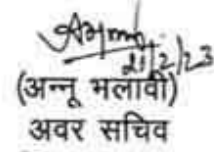 21/2/23
(अन्नू भलावी)
अवर सचिव